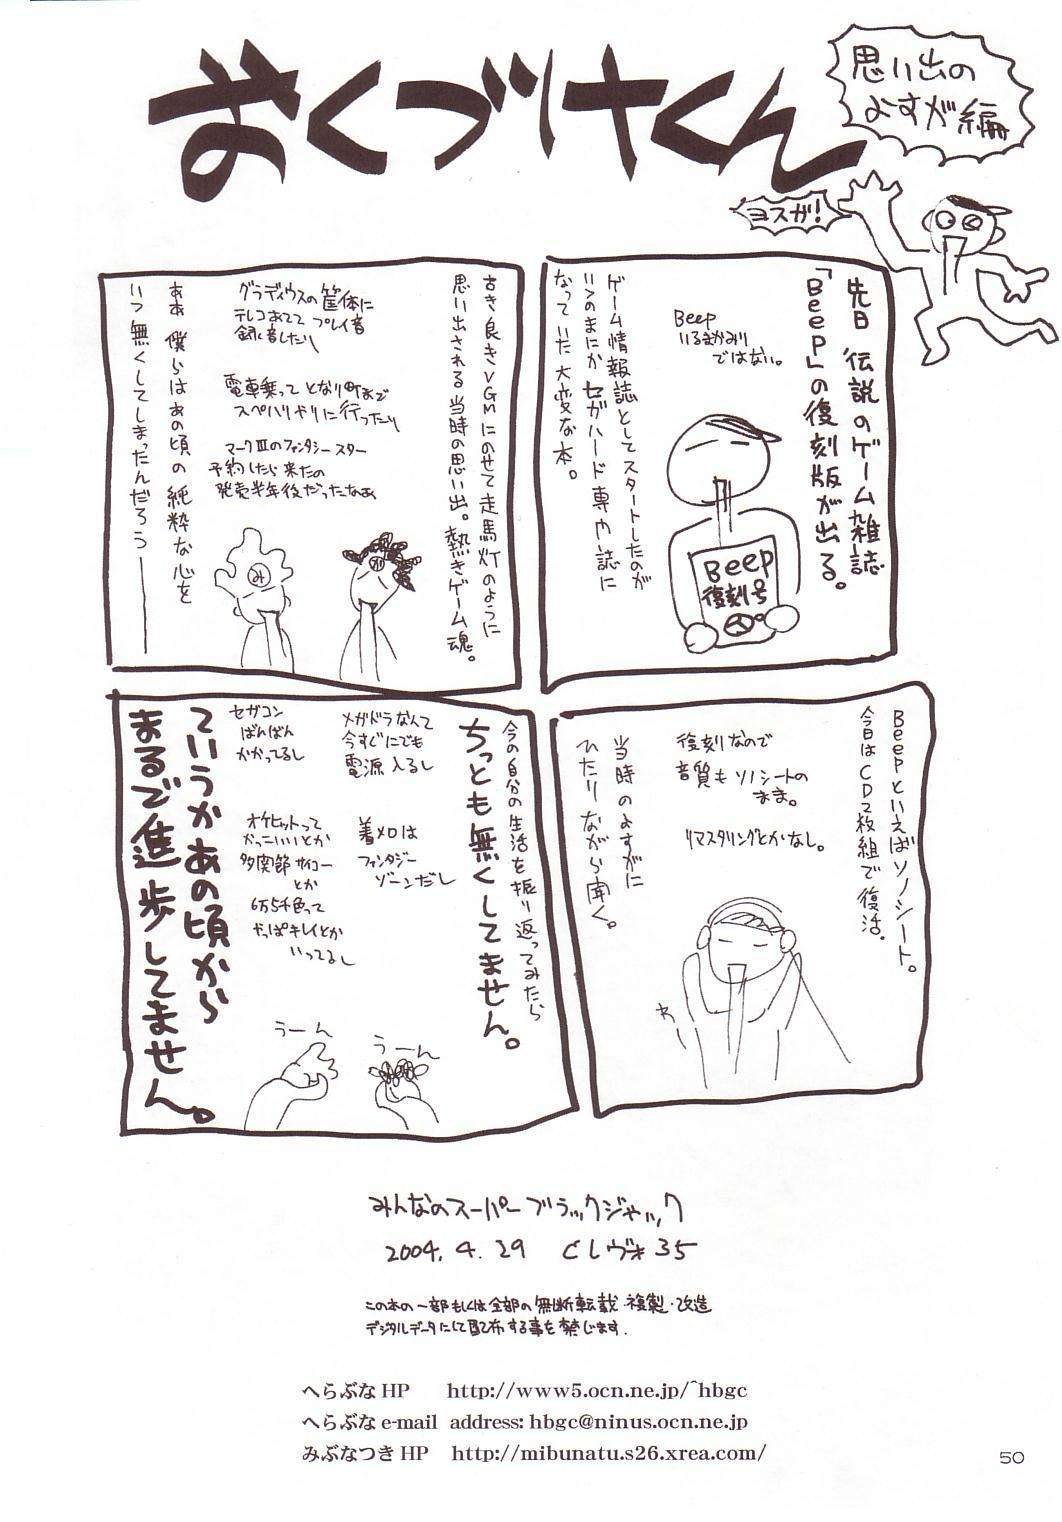 おくづけくん
思い出の
よすが編
ヨスガ!
先日 伝説のゲーム雑誌
「Beep」の復刻版が出る。
Beep
いるまかみり
ではない。
ゲーム情報誌としてスタートしたのが
いつのまにか セガハード専門誌に
なっていた 大変な本。
Beep
復刻号
古き良きVGMにのせて走馬灯のように
思い出される 当時の思い出。熱きゲーム魂。
グラディウスの筐体に
テレコあてて プレイ音
録音したり
電車乗って となり町まで
スペハリドリに行ったり
マークⅢのファンタシースター
予約したら来たの
発売半年後だったなぁ
み
ああ 僕らはあの頃の純粋な心を
いつ無くしてしまったんだろう――
Beepといえばソノシート。
今日はCD2枚組で復活。
復刻なので
音質もソノシートの
まま。
リマスタリングとかなし。
当時のよすがに
ひたりながら聞く。
今の自分の生活を振り返ってみたら
ちっとも無くしてません。
メガドラなんて
今すぐにでも
電源入るし
着メロは
ファンタジー
ゾーンだし
セガコン
ばんばん
かかってるし
オケヒットって
かっこいいとか
多関節サイコー
とか
6万5千色って
やっぱキレイとか
いってるし
うーん
うーん
ていうかあの頃から
まるで進歩してません。
みんなのスーパーブラックジャック
2004.4.29 くしヴォ35
この本の一部もしくは全部の無断転載・複製・改造
デジタルデータにして配布する事を禁じます.
へらぶな HP http://www5.ocn.ne.jp/~hbgc
へらぶな e-mail address: hbgc@ninus.ocn.ne.jp
みぶなつき HP http://mibunatu.s26.xrea.com/
50